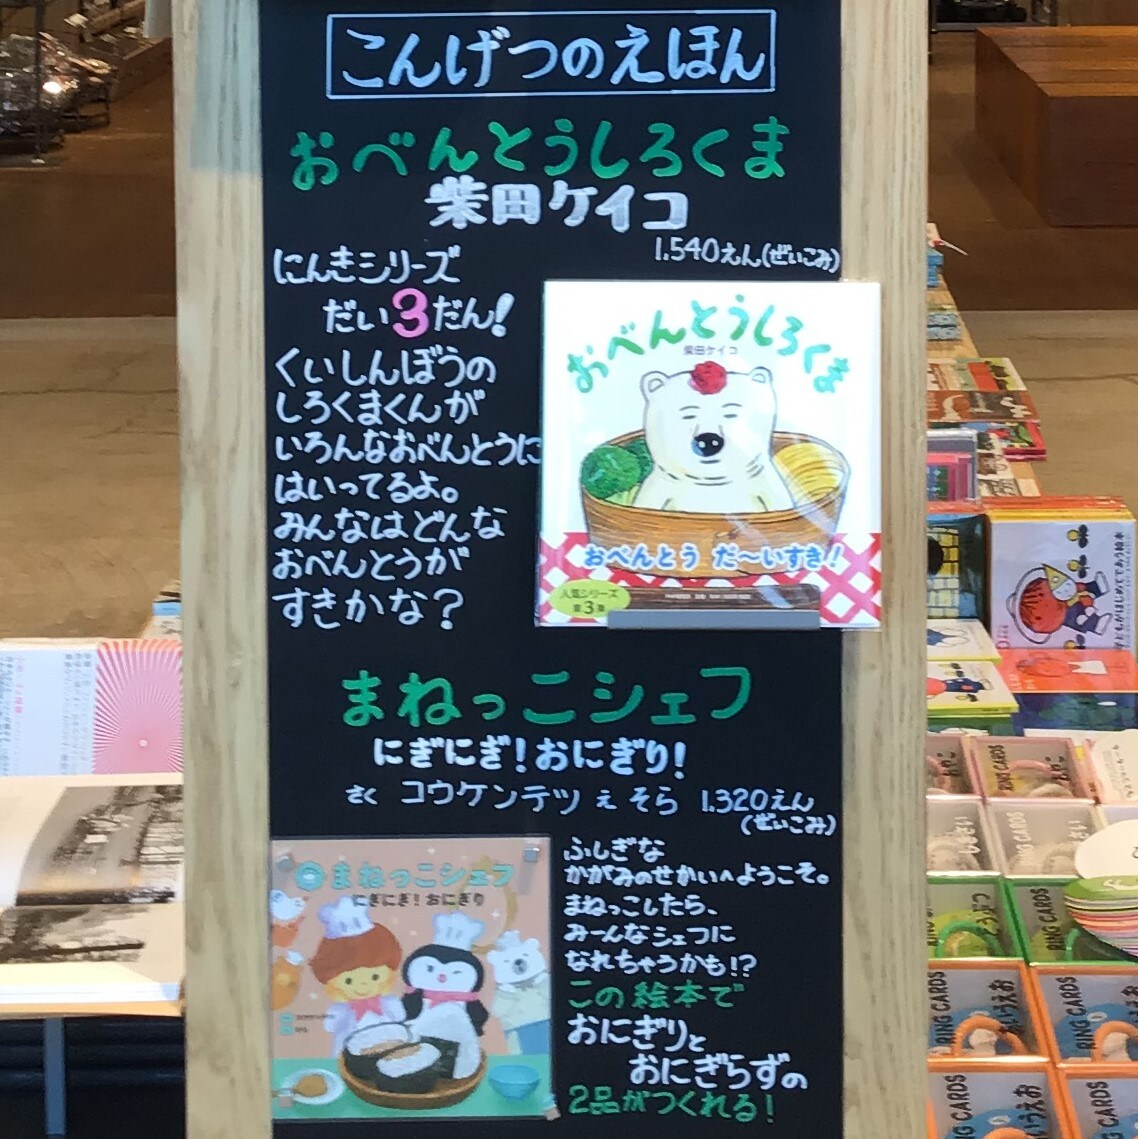 こんげつのえほん
おべんとうしろくま
柴田ケイコ
1,540えん(ぜいこみ)
にんきシリーズ
だい3だん!
くいしんぼうの
しろくまくんが
いろんなおべんとうに
はいってるよ。
みんなはどんな
おべんとうが
すきかな?
おべんとうしろくま
柴田ケイコ
おべんとう だ〜いすき!
人気シリーズ
第3弾
まねっこシェフ
にぎにぎ!おにぎり!
さく コウケンテツ え そら 1,320えん
(ぜいこみ)
まねっこシェフ
にぎにぎ! おにぎり
ふしぎな
かがみのせかいへようこそ。
まねっこしたら、
みーんなシェフに
なれちゃうかも!?
この絵本で
おにぎりと
おにぎらずの
2品がつくれる!
子どもがはじめてであう絵本
RING CARDS
RING CARDS
RING CARDS
RING CARDS
RING CARDS
RING CARDS
RING CARDS
RING CARDS